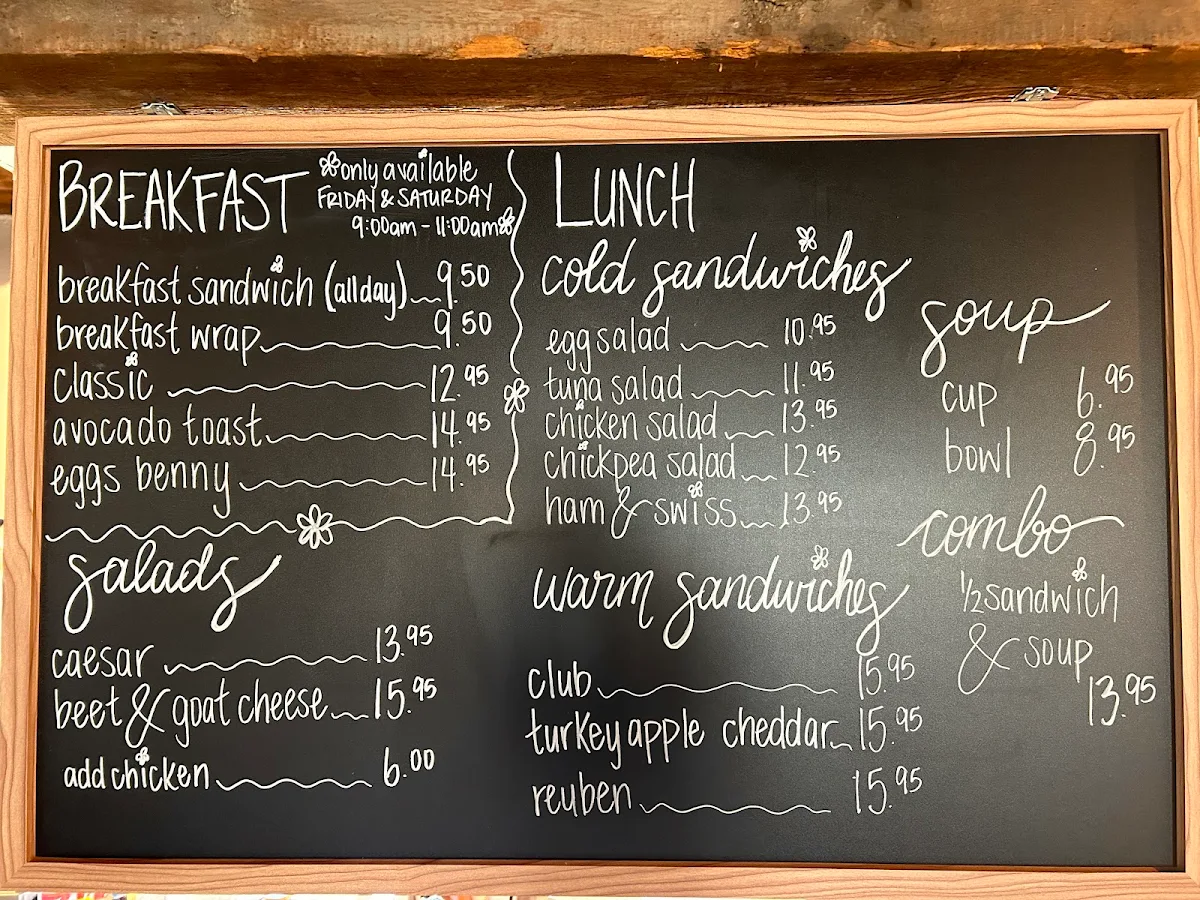 BREAKFAST
only available
FRIDAY & SATURDAY
9:00am - 11:00am
breakfast sandwich (all day) 9.50
breakfast wrap 9.50
classic 12.95
avocado toast 14.95
eggs benny 14.95
salads
caesar 13.95
beet & goat cheese 15.95
add chicken 6.00
LUNCH
cold sandwiches
egg salad 10.95
tuna salad 11.95
chicken salad 13.95
chickpea salad 12.95
ham & swiss 13.95
warm sandwiches
club 15.95
turkey apple cheddar 15.95
reuben 15.95
soup
cup 6.95
bowl 8.95
combo
1/2 sandwich
& soup
13.95